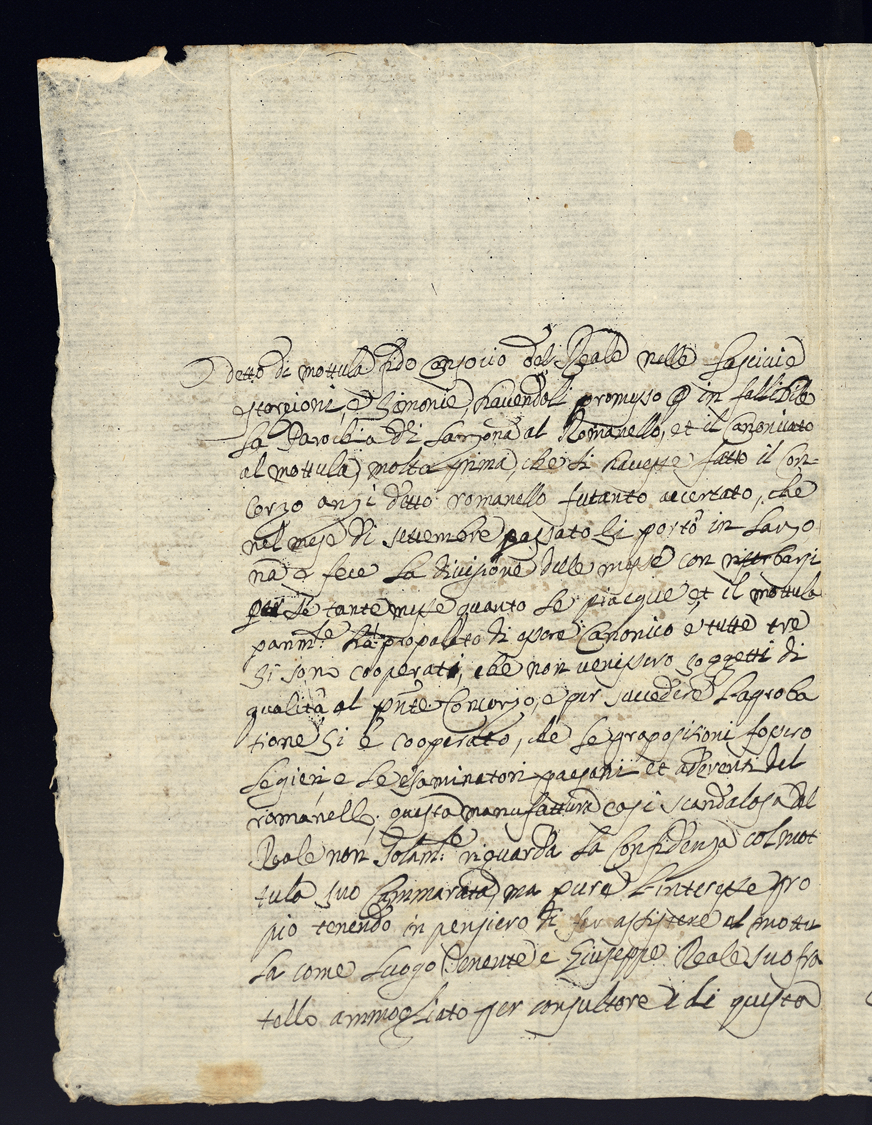 detto di mottula fido consocio del Reale nelle lascivie
estorzioni, e simonie havendoli promesso p in fallibile
la Parochia di Sarzona al Romanello, et il Canonicato
al mottula molto prima, che si havesse fatto il con-
corzo anzi detto romanello fu tanto accertato, che
nel mese di settembre passato si portò in Sarzo
na e fece la divisione delle messe con riserbarsi
per se tante messe quanto le piacque et il mottula
parim.te ha propalato di essere Canonico e tutte tre
si sono cooperati, che non venissero soggetti di
qualità al pnte Concorzo, e per succedere l'aproba
tione si è cooperato, che le proposizioni fossero
legieri e le esaminatori paesani et aderenti del
romanello. questa manufattura cosi scandalosa del
Reale non solam.te riguarda la confidenza col mot
tula suo cammarata, ma pure l'interesse pro
pio tenendo in pensiero di far assistere al mottu
la come luogo tenente e Giuseppe Reale suo fra
tello ammogliato per consultore e di questa